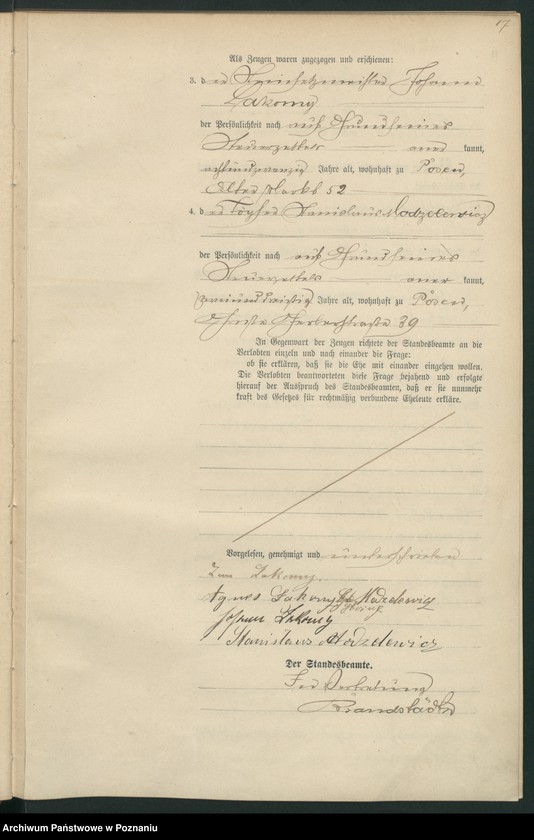 17
Als Zeugen waren zugezogen und erschienen:
3. der Johann
Lakomy
der Persönlichkeit nach auf Grund seines
Steuerzettels aner kannt,
achtundzwanzig Jahre alt, wohnhaft zu Posen,
Alter Markt 52
4. der Stanislaus Modzelewicz
der Persönlichkeit nach auf Grund seines
Steuerzettels aner kannt,
Jahre alt, wohnhaft zu Posen,
Gerberstraße 39
In Gegenwart der Zeugen richtete der Standesbeamte an die
Verlobten einzeln und nach einander die Frage:
ob sie erklären, daß sie die Ehe mit einander eingehen wollen.
Die Verlobten beantworteten diese Frage bejahend und erfolgte
hierauf der Ausspruch des Standesbeamten, daß er sie nunmehr
kraft des Gesetzes für rechtmäßig verbundene Eheleute erkläre.
Vorgelesen, genehmigt und unterschrieben
Lakomy.
Agnes Lakomy
Johann Lakomy
Stanislaus Modzelewicz
Der Standesbeamte.
In Vertretung
Brandstäder
Archiwum Państwowe w Poznaniu